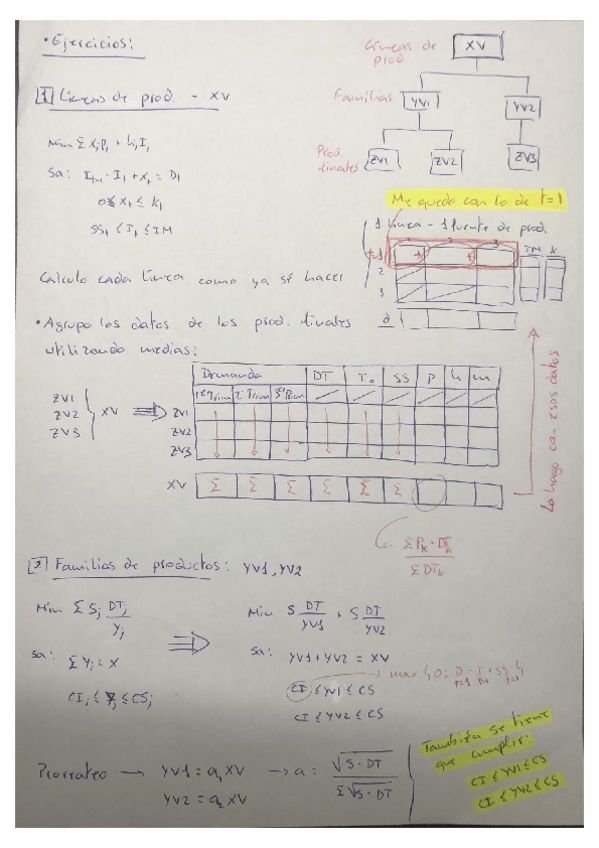 • Ejercicios:
Líneas de prod.
XV
Familias
YV1
YV2
Prod. finales
ZV1
ZV2
ZV3
1 Líneas de prod. - XV
Min Σ
Sa: I_{t-1} - I_t + X_t = D_t
0 ≤ X_t ≤ K_t
SS_t ≤ I_t ≤ IM
Me quedo con lo de t=1
1 línea - 1 fuente de prod.
1 2 3
IM K
t=1
2
3
d
Calculo cada línea como ya sé hacer
• Agrupo los datos de los prod. finales
utilizando medias:
Demanda DT I₀ SS P h m
1er Trim 2º Trim 3er Trim
ZV1
ZV2
ZV3
XV
ZV1
ZV2
ZV3
XV Σ Σ Σ Σ Σ Σ
Lo hago con esos datos
Σ P_k · DT_k
Σ DT_k
2 Familias de productos: YV1, YV2
Min Σ S_j DT_j / Y_j
Sa: Σ Y_j = X
CI_j ≤ Y_j ≤ CS_j
Min S DT / YV1 + S DT / YV2
Sa: YV1 + YV2 = XV
CI ≤ YV1 ≤ CS
CI ≤ YV2 ≤ CS
Prorrateo → YV1 = a₁ XV → a: √S · DT / Σ√S · DT
YV2 = a₂ XV
También se tiene
que cumplir:
CI ≤ YV1 ≤ CS
CI ≤ YV2 ≤ CS